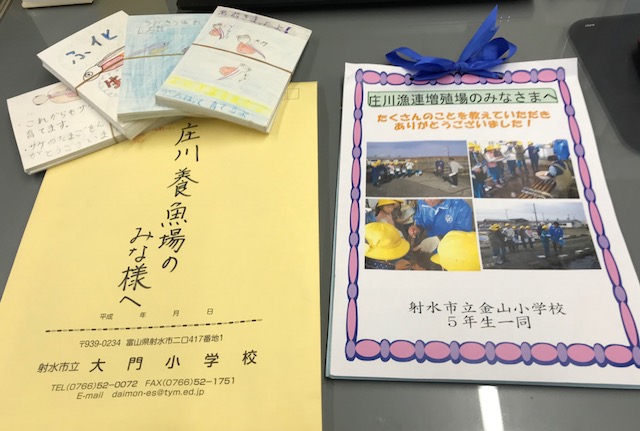 ふ化
これからもサケ
育てます。
庄川養魚場の
みな様へ
平成　　年　　月　　日
〒939-0234　富山県射水市二口417番地1
射水市立　大門小学校
TEL(0766)52-0072　FAX(0766)52-1751
E-mail　daimon-es@tym.ed.jp
庄川漁連増殖場のみなさまへ
たくさんのことを教えていただき
ありがとうございました!
射水市立金山小学校
5年生一同